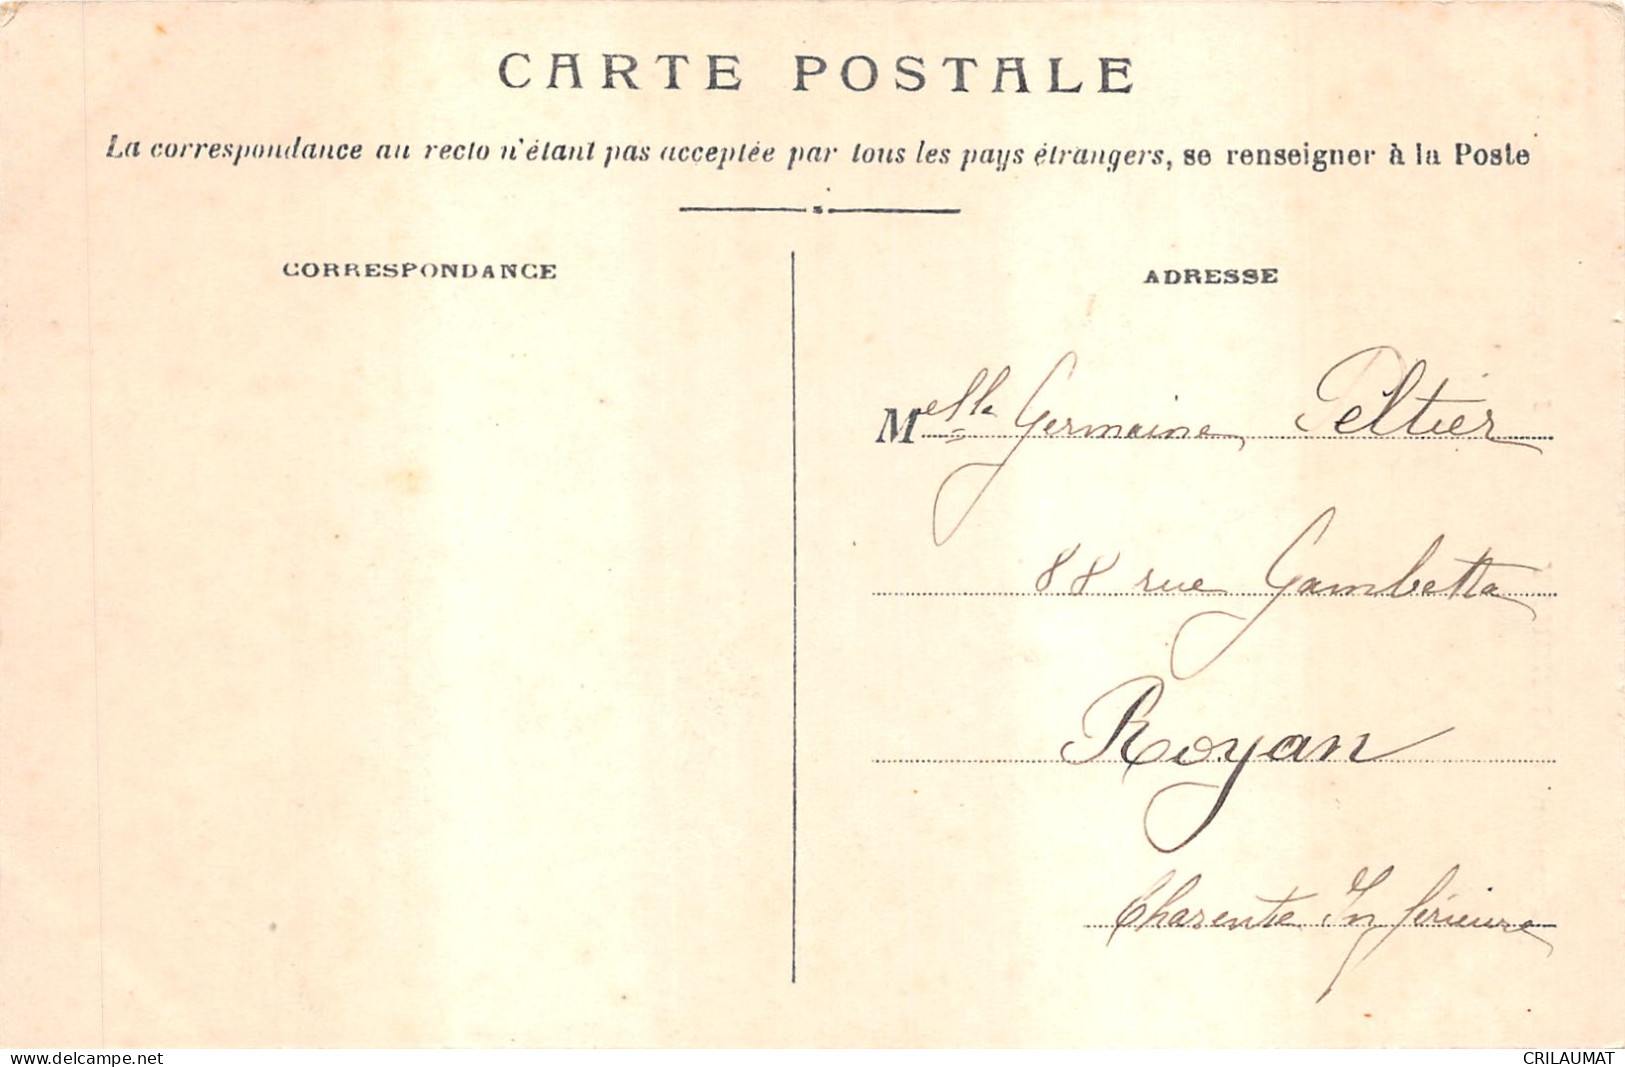 CARTE POSTALE
La correspondance au recto n'étant pas acceptée par tous les pays étrangers, se renseigner à la Poste
CORRESPONDANCE
ADRESSE
Melle Germaine Peltier
88 rue Gambetta
Royan
Charente Inférieure
www.delcampe.net
CRILAUMAT